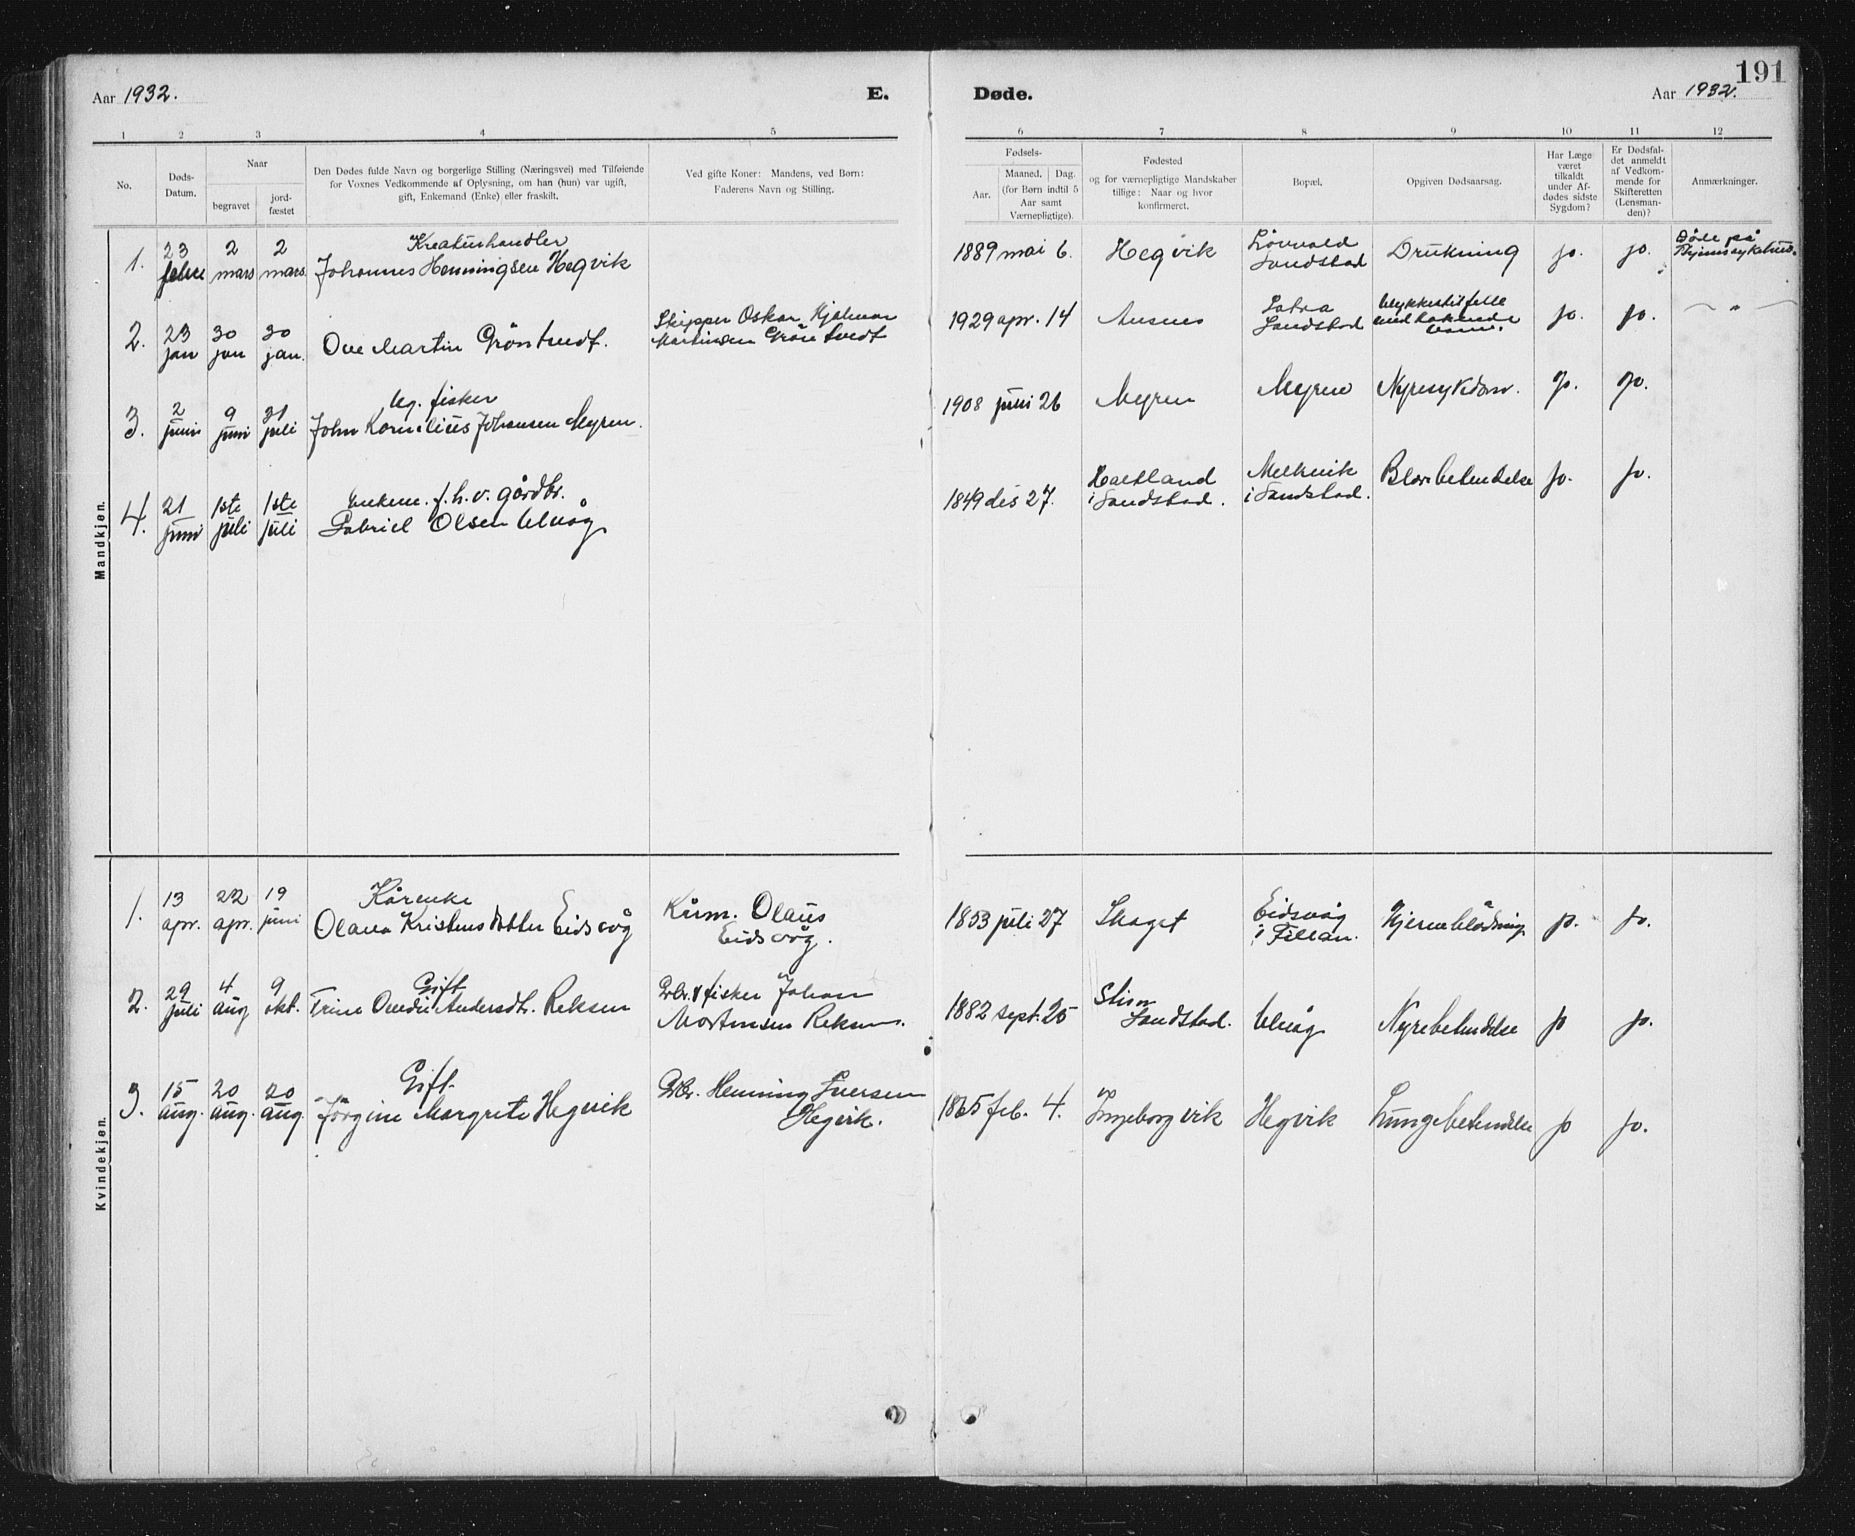 191
Aar 1932.
E.
Døde.
Aar 1932.
1 2 3 4 5 6 7 8 9 10 11 12
No.
Døds-
Datum.
Naar
begravet
jord-
fæstet
Den Dødes fulde Navn og borgerlige Stilling (Næringsvei) med Tilføiende
for Voxnes Vedkommende af Oplysning, om han (hun) var ugift,
gift, Enkemand (Enke) eller fraskilt.
Ved gifte Koner: Mandens, ved Børn:
Faderens Navn og Stilling.
Fødsels-
Aar.
Maaned. Dag.
(for Børn indtil 5
Aar samt
Værnepligtige).
Fødested
og for værnepligtige Mandskaber
tillige: Naar og hvor
konfirmeret.
Bopæl.
Opgiven Dødsaarsag.
Har Læge
været
tilkaldt
under Af-
dødes sidste
Sygdom?
Er Dødsfal-
det anmeldt
af Vedkom-
mende for
Skifteretten
(Lensman-
den)?
Anmærkninger.
Mandkjøn.
1.
23
febr
2
mars
2
mars.
Kreaturhandler
Johannes Henningsen Hegvik
1889 mai 6.
Hegvik
Lövvold
Sandstad
Drukning
jo.
jo.
Döde på
2.
23
jan
30
jan
30
jan.
Ove Martin Gröntvedt.
Skipper Oskar Hjalmar
Martinsen Gröntvedt
1929 apr. 14
Ansnes
Sandstad
Ulykkestilfelle
med kokende
vann.
jo.
jo.
— " —
3.
2
juni
9
juni
31
juli
Ug. fisker
John Kornelius Johansen Myren.
1908 juni 26
Myren
Myren
Nyresykdom.
jo.
jo.
4.
21
juni
1ste
juli
1ste
juli
Enkem. f.h.v. gårdbr.
Gabriel Olsen Ulvåg
1849 des 27.
Haltland
i Sandstad.
Melkvik
i Sandstad.
Blærebetendelse
jo.
jo.
Kvindekjøn.
1.
13
apr.
22
apr.
19
juni
Kårenke
Olava Kristensdatter Eidsvåg
Kårm. Olaus
Eidsvåg.
1853 juli 27
Skaget
Eidsvåg
i Fillan.
Hjerneblödning
jo.
jo.
2.
29
juli
4
aug
9
okt.
Gift
Trine Andersdtr. Reksen
Gbr. & fisker Johan
Mortensen Reksen.
1882 sept. 25
Sandstad.
Ulvåg
Nyrebetendelse
jo
jo.
3.
15
aug.
20
aug.
20
aug.
Gift
Jörgine Margrete Hegvik
Gbr. Henning Iversen
Hegvik.
1865 feb. 4.
Ingeborgvik
Hegvik
Lungebetendelse
jo
jo.